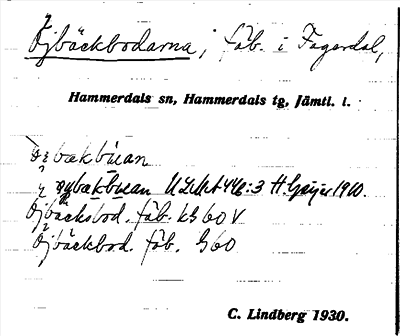 Öjbäckbodarna, fäb. i Fagerdal,
Hammerdals sn, Hammerdals tg, Jämtl. l.
bækbúan
bækbúan ULMA 446:3 H. Geijer 1910.
Öjbäcksbod. fäb. kG 60 V
Öjbäckbod. fäb. G60
C. Lindberg 1930.